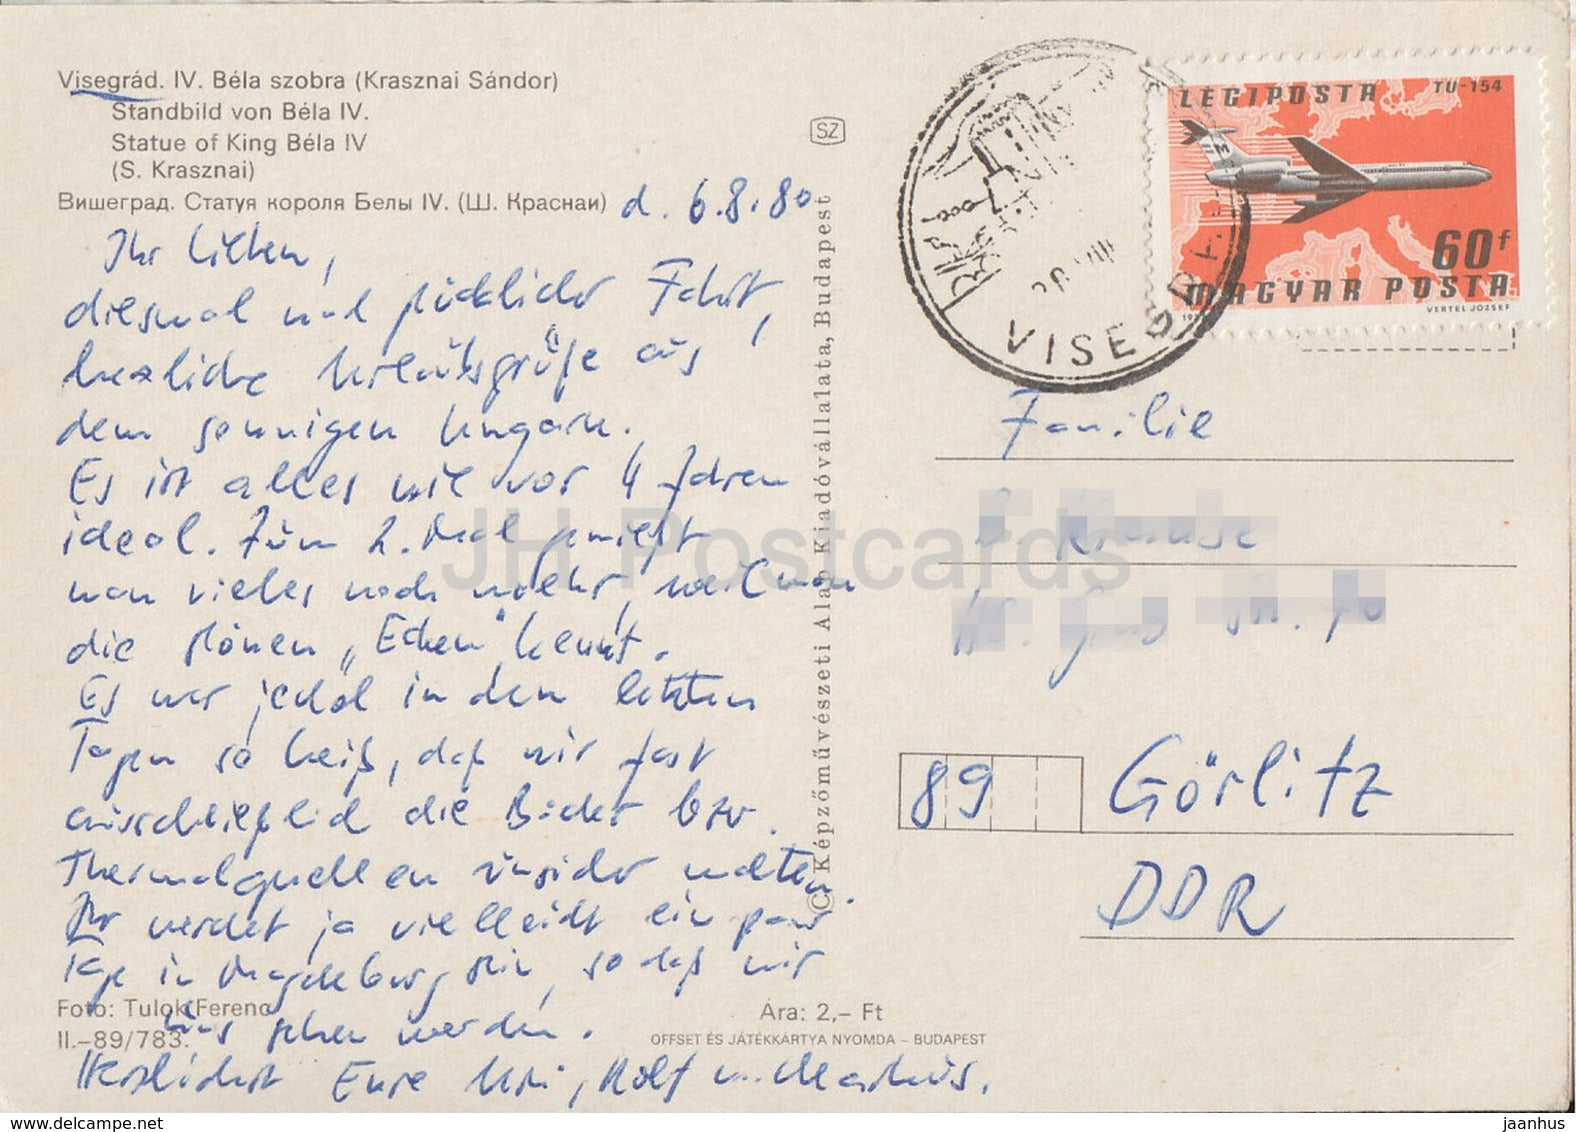 Visegrád. IV. Béla szobra (Krasznai Sándor)
Standbild von Béla IV.
Statue of King Béla IV
(S. Krasznai)
Вишеград. Статуя короля Белы IV. (Ш. Краснаи)
d. 6.8.80
Ihr Lieben,
diesmal nach pünktlicher Fahrt,
herzliche Urlaubsgrüße aus
dem sonnigen Ungarn.
Es ist alles wie vor 4 Jahren
ideal. Zum 2. Mal genießt
man vieles noch mehr, weil man
die schönen „Ecken" kennt.
Es war jedoch in den letzten
Tagen so heiß, daß wir fast
ausschließlich die Bäder bzw.
Thermalquellen unsicher machten.
Ihr werdet ja vielleicht ein paar
Tage in Magdeburg sein, so daß wir
uns sehen werden.
Herzlichst Eure Uschi, Rolf u. Markus.
Foto: Tulok Ferenc
II.-89/783.
Ára: 2,- Ft
OFFSET ÉS JÁTÉKKÁRTYA NYOMDA - BUDAPEST
SZ
© Képzőművészeti Alap Kiadóvállalata, Budapest
LÉGIPOSTA TU-154
60f
MAGYAR POSTA
VERTEL JÓZSEF
VISEGRÁD
Familie
Krause
89 Görlitz
DDR
JH Postcards
delcampe.net
jaanhus